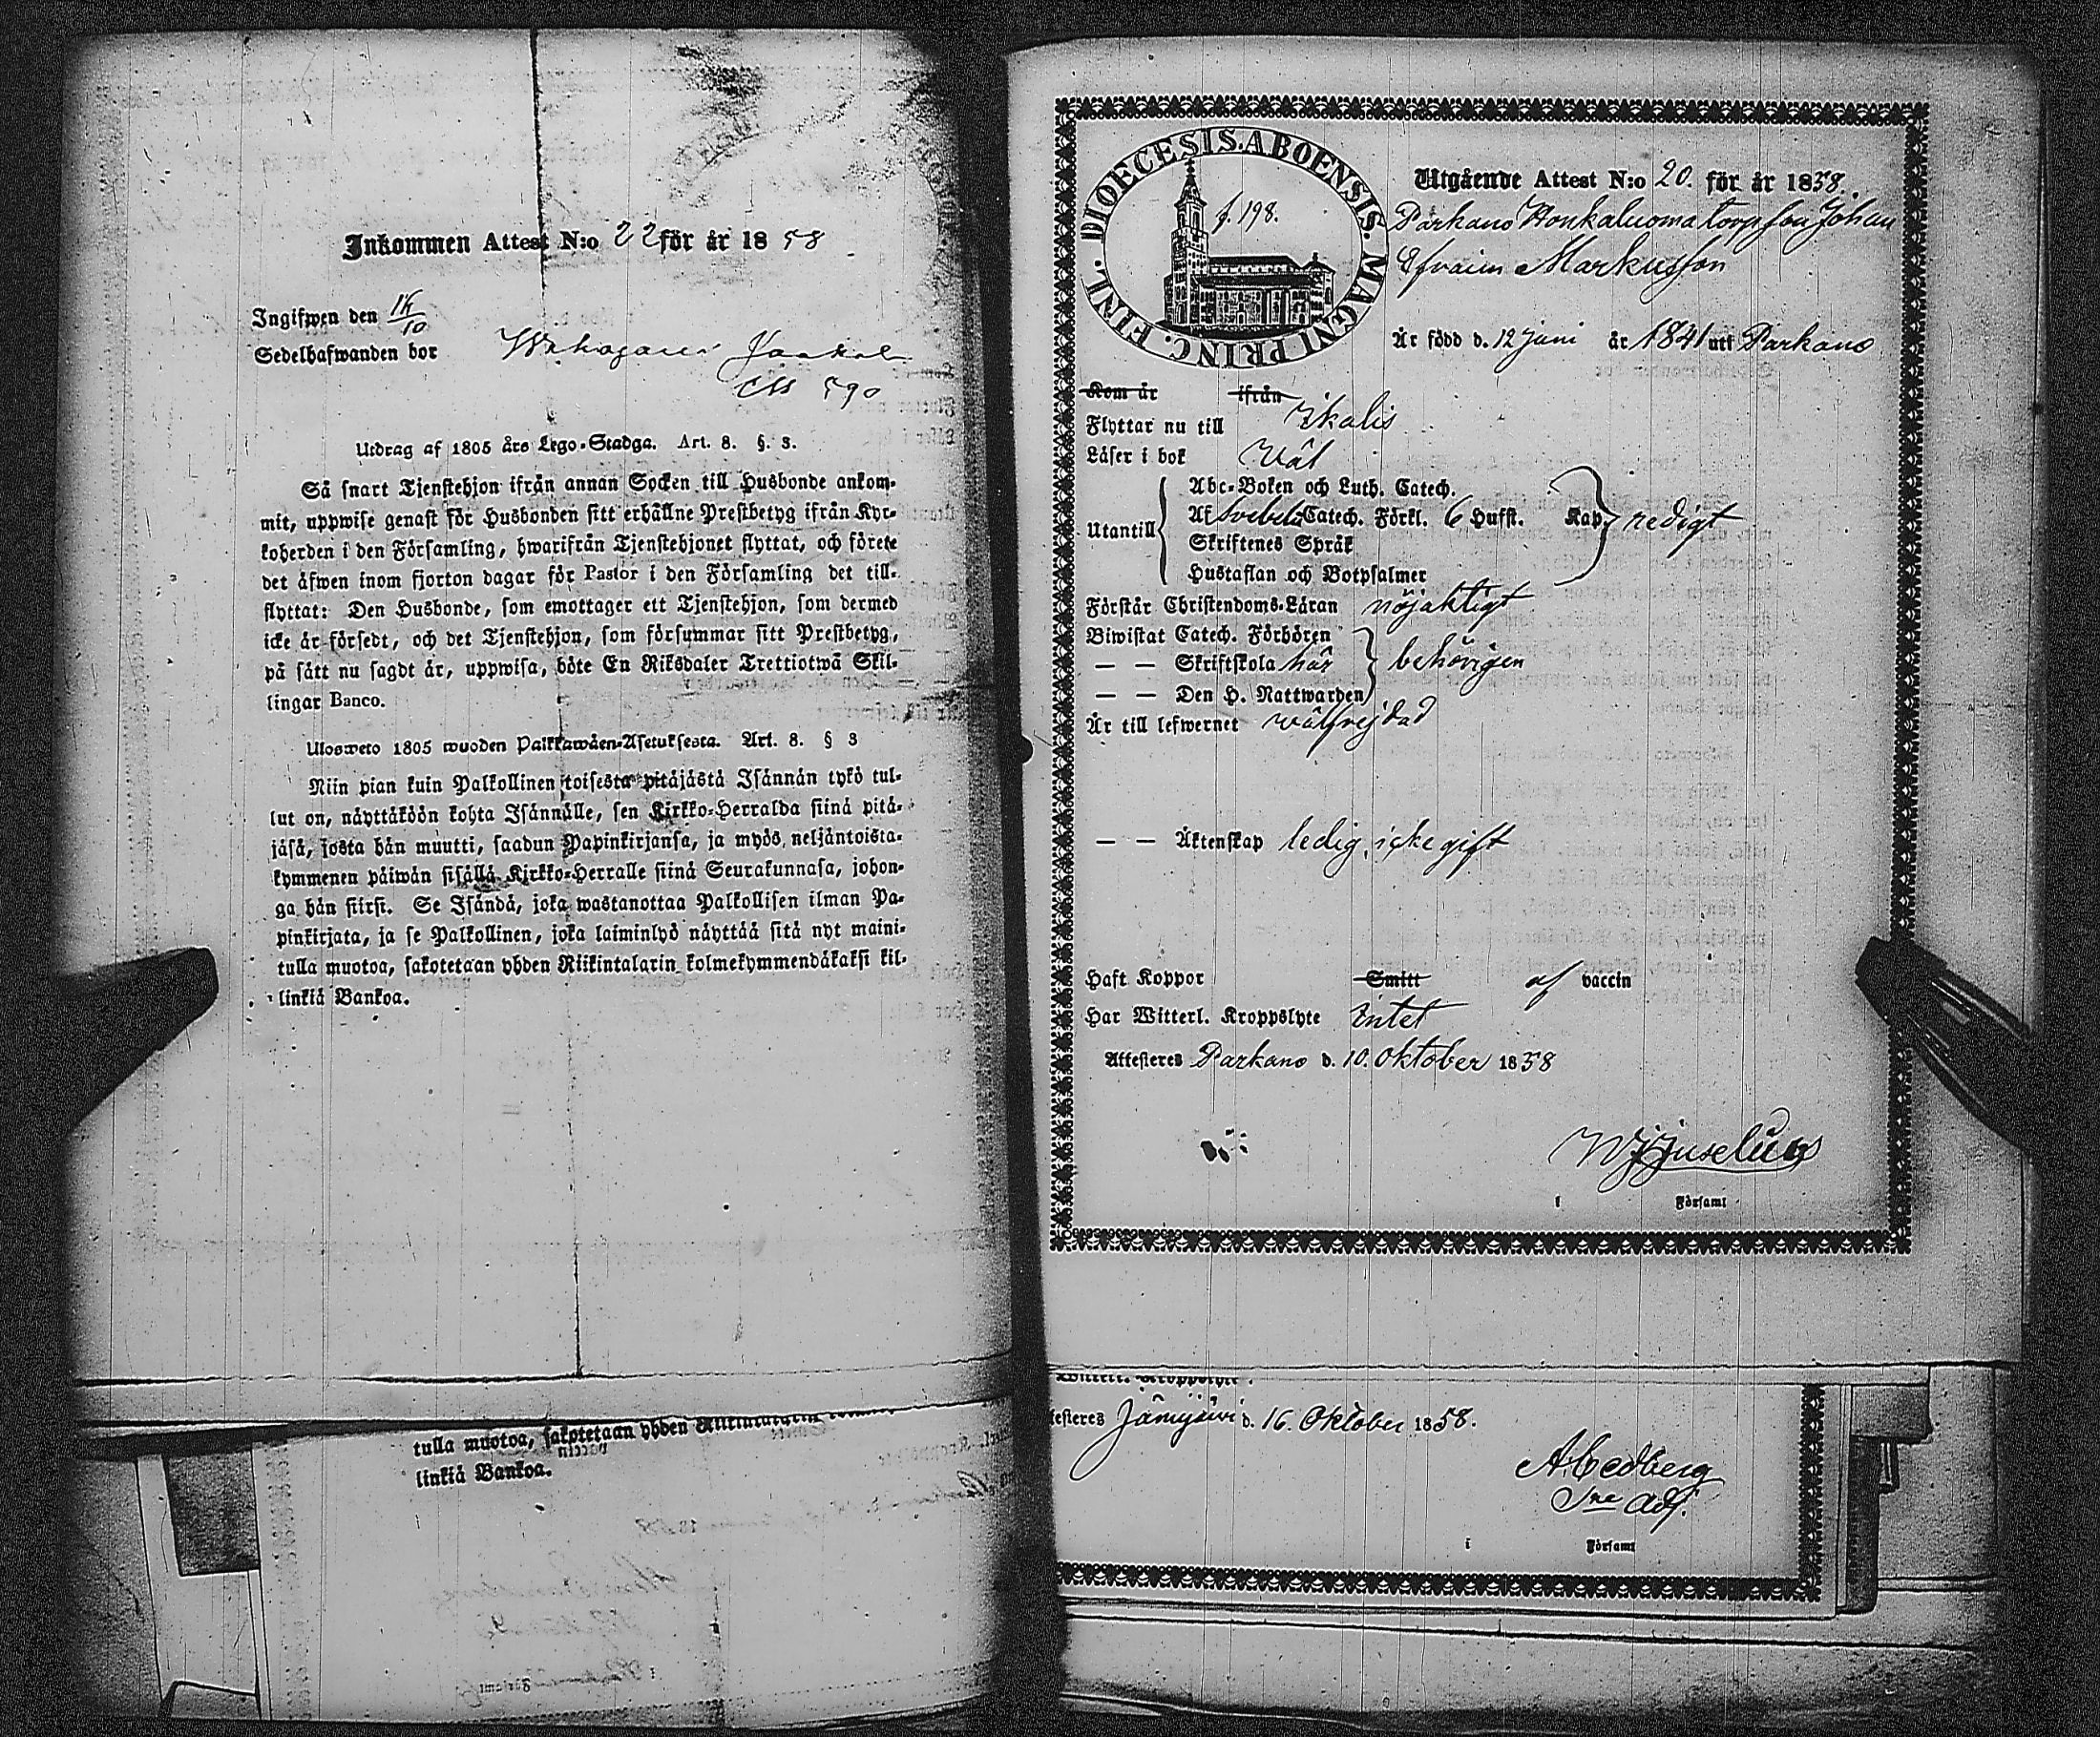 Inkommen Attest N:o 22 för år 1858
Ingifwen den 16/10
Sedelhafwanden bor
590
Utdrag af 1805 års Lego-Stadga. Art. 8. §. 3.
Så snart Tjenstehjon ifrån annan Socken till Husbonde ankom-
mit, uppwise genast för Husbonden sitt erhållne Prestbetyg ifrån Kyr-
koherden i den Församling, hwarifrån Tjenstehjonet flyttat, och förete
det äfwen inom fjorton dagar för Pastor i den Församling det till-
flyttat: Den Husbonde, som emottager ett Tjenstehjon, som dermed
icke är försedt, och det Tjenstehjon, som försummar sitt Prestbetyg,
på sätt nu sagdt är, uppwisa, böte En Riksdaler Trettiotwå Skil-
lingar Banco.
Ulosweto 1805 wuoden Palkkawäen-Asetuksesta. Art. 8. § 3
Niin pian kuin Palkollinen toisesta pitäjästä Isännän tykö tul-
lut on, näyttäköön kohta Isännälle, sen Kirkko-Herralda siinä pitä-
jäsä, josta hän muutti, saadun Papinkirjansa, ja myös neljäntoista-
kymmenen päiwän sisällä Kirkko-Herralle siinä Seurakunnasa, johon-
ga hän siirsi. Se Isändä, joka wastanottaa Palkollisen ilman Pa-
pinkirjata, ja se Palkollinen, joka laiminlyö näyttää sitä nyt maini-
tulla muotoa, sakotetaan yhden Riikintalarin kolmekymmendäkaksi kil-
linkiä Bankoa.
tulla muotoa, sakotetaan yhden
linkiä Bankoa.
DIOECESIS. ABOENSIS. MAGNI PRINC. FINL.
f. 198.
Utgående Attest N:o 20. för år 1858.
Parkano Honkaluoma torpson Johan
Efraim Markusson
Är född d. 12 Juni år 1841 uti Parkano
Kom år ifrån
Flyttar nu till Ikalis
Läser i bok Väl
Abc-Boken och Luth. Catech.
Utantill Af Svebelii Catech. Förkl. 6 Hufst. Kap. redigt
Skriftenes Språk
Hustaflan och Botpsalmer
Förstår Christendoms-Läran nöjaktigt
Biwistat Catech. Förhören
— — Skriftskola här behörigen
— — Den H. Nattwarden
Är till lefwernet wälfrejdad
— — Äktenskap ledig, icke gift
Haft Koppor Smitt af vaccin
Har Witterl. Kroppslyte Intet
Attesteres Parkano d. 10. Oktober 1858
i Församl
testeres Jämijärvi d. 16. Oktober 1858.
A. Cedberg
i Församl